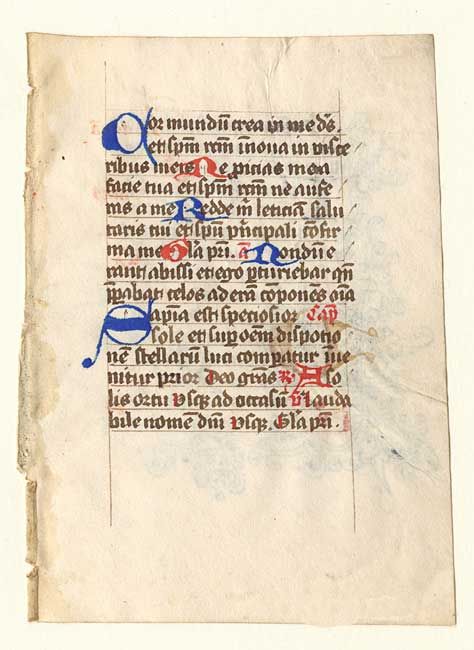 Cor mundū crea in me ds̄
et spm̄ rcm̄ īnoua in visce
ribus meis Ne ꝓicias me a
facie tua et spm̄ rcm̄ ne aufe
ras a me Redde m̄ leticiā salu
taris tui et spū pn̄cipali cōfir
ma me Gla pr̄i. a Nondū e
rant abissi et ego ꝑturiebar qn̄
p̄ꝑabat celos aderā cōponēs oīa
Sapīa est speciosior Cap̄
sole et suꝑ oēm dispōtio
nē stellarū luci comꝑatur īue
nitur prior Deo grās ℟ A so
lis ortu vsqꝫ ad occasū ℣ lauda
bile nomē dnī vsqꝫ. Gla pr̄i.